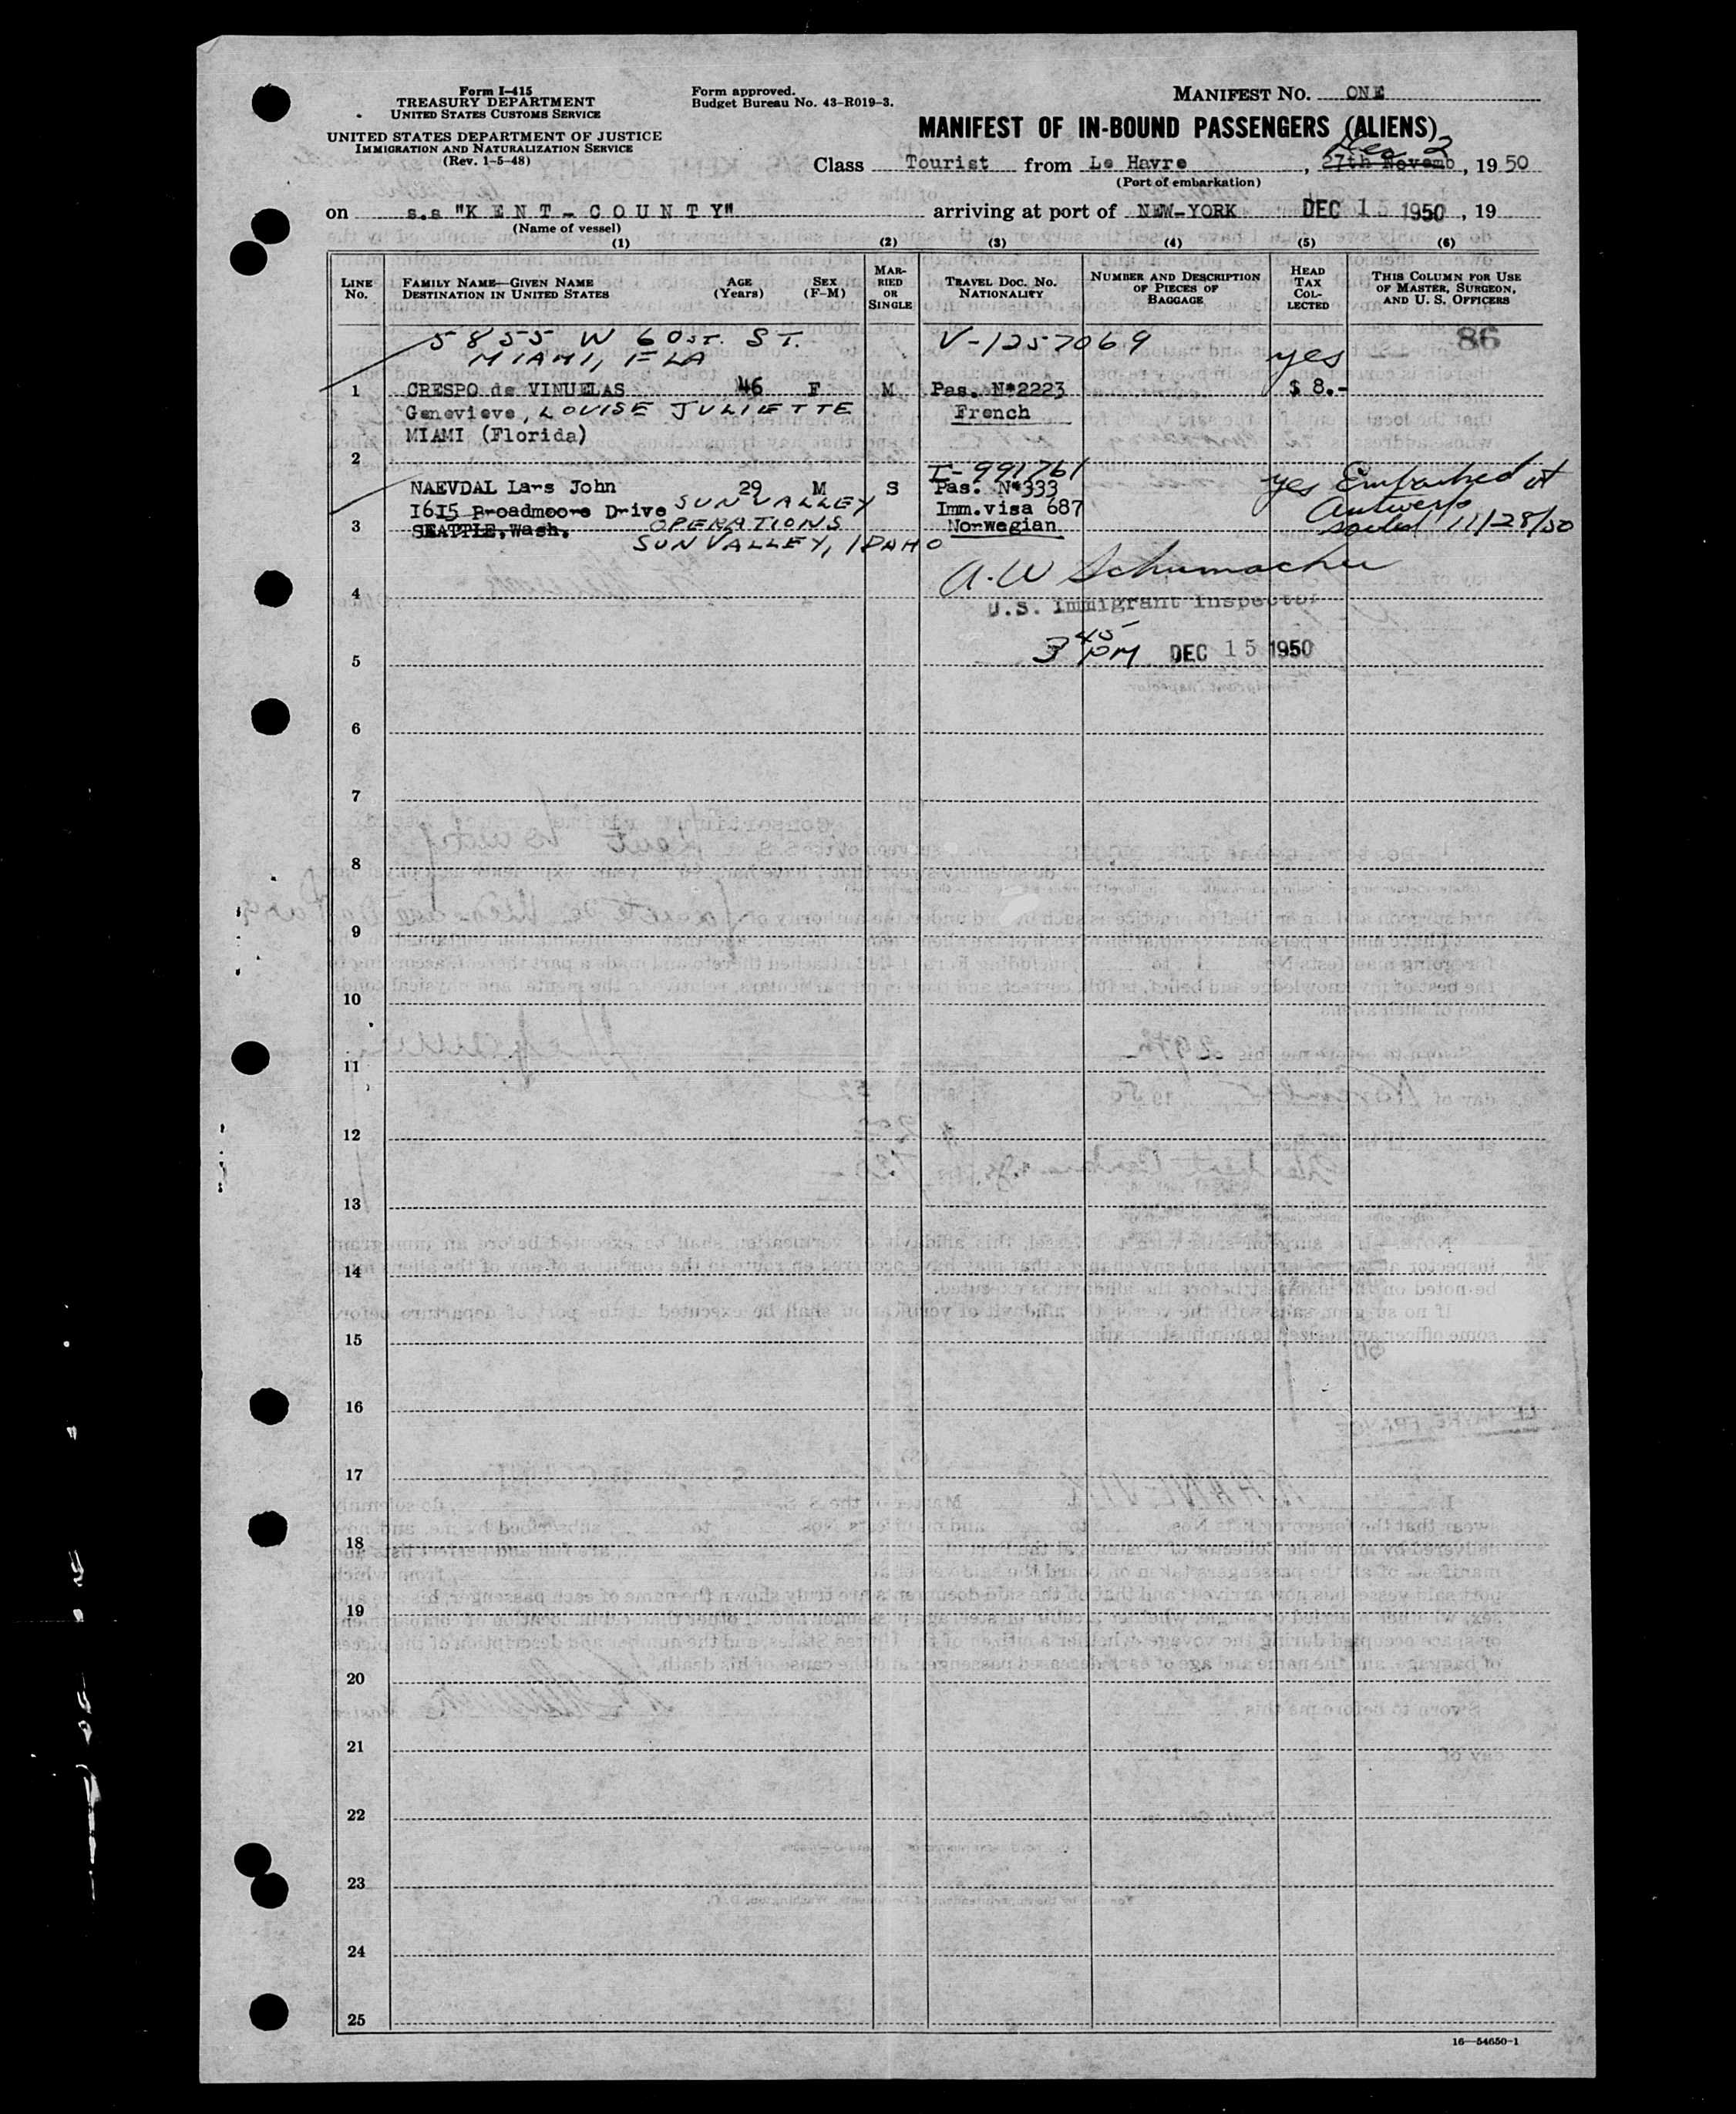 Form I-415
TREASURY DEPARTMENT
UNITED STATES CUSTOMS SERVICE
UNITED STATES DEPARTMENT OF JUSTICE
IMMIGRATION AND NATURALIZATION SERVICE
(Rev. 1-5-48)
Form approved.
Budget Bureau No. 43-R019-3.
MANIFEST NO. ONE
MANIFEST OF IN-BOUND PASSENGERS (ALIENS)
Dec 2
Class Tourist from Le Havre, 27th Novemb, 1950
(Port of embarkation)
on s.s "KENT-COUNTY" arriving at port of NEW-YORK DEC 15 1950, 19
(Name of vessel)
(1) (2) (3) (4) (5) (6)
LINE No. FAMILY NAME—GIVEN NAME DESTINATION IN UNITED STATES AGE (Years) SEX (F-M) MARRIED OR SINGLE TRAVEL DOC. NO. NATIONALITY NUMBER AND DESCRIPTION OF PIECES OF BAGGAGE HEAD TAX COLLECTED THIS COLUMN FOR USE OF MASTER, SURGEON, AND U. S. OFFICERS
5855 W 60ST. ST. V-1257069 86
MIAMI, FLA yes
1 CRESPO de VINUELAS 46 F M Pas. N°2223 $ 8.-
Genevieve, LOUISE JULIETTE French
MIAMI (Florida)
2
I-991761
NAEVDAL Lars John 29 M S Pas. N°333 yes Embarked at
1615 Broadmoore Drive SUN VALLEY Imm.visa 687 Antwerp
3 SEATTLE,Wash. OPERATIONS Norwegian sailed 11/28/50
SUN VALLEY, IDAHO
A.W Schumacher
4
U.S. Immigrant Inspector
3 45 PM DEC 15 1950
5
6
7
8
9
10
11
12
13
14
15
16
17
18
19
20
21
22
23
24
25
16—54650-1